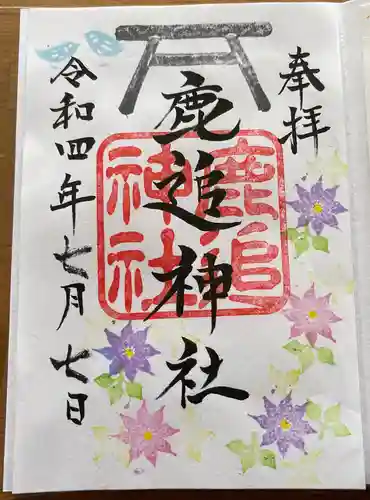 奉拝
鹿追神社
鹿追神社
令和四年七月七日